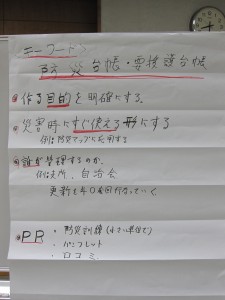 キーワード>
防災台帳・要援護台帳
作る目的を明確にする。
災害時にすぐ使える形にする
例えば防災マップに応用する
誰が管理するのか。
役所、自治会
更新を
行っていく
PR ・防災訓練(小さい単位で)
・パンフレット
・口コミ